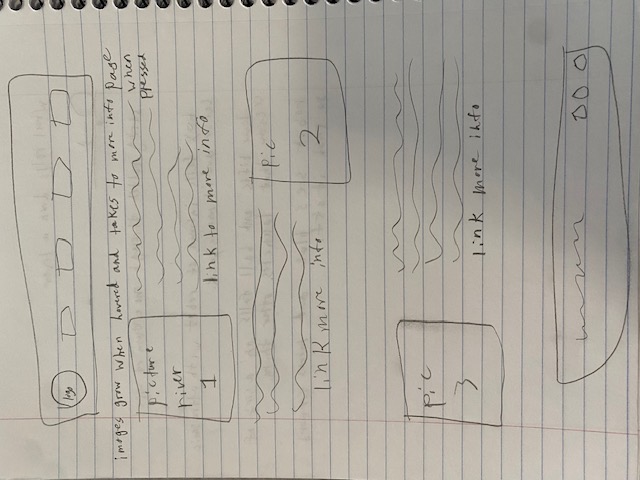 logo
images grow when hovered and takes to more info page
when
pressed
picture
river
1
link to more info
pic
2
link more info
pic
3
link more info